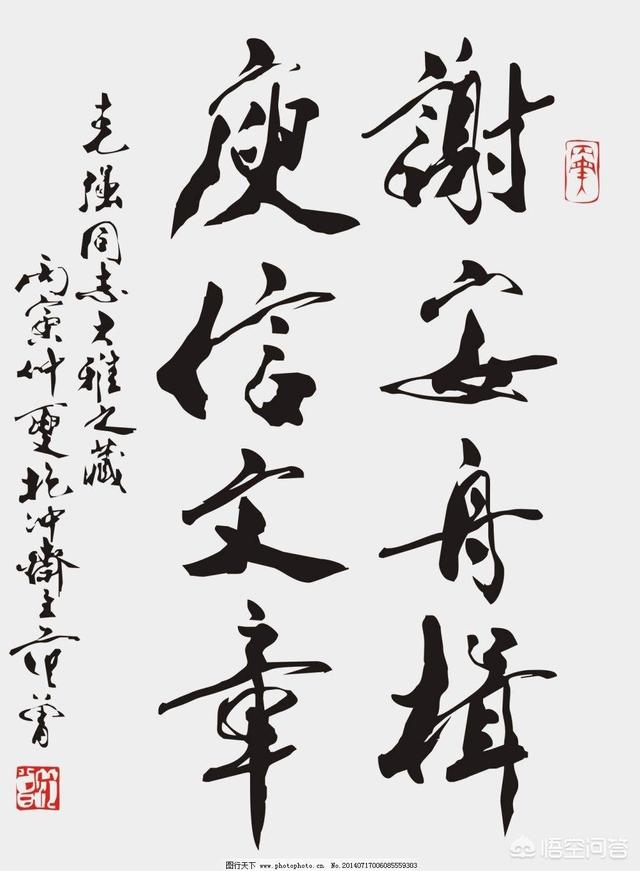 謝安舟楫
庾信文章
克強同志大雅之藏
丙寅仲夏抱冲齋主范曾
图行天下 www.photophoto.cn No.20140717006085559303
悟空问答